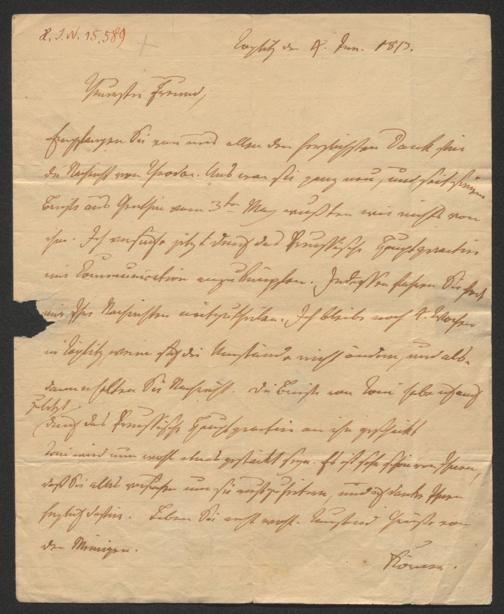 H.I.N. 15.589
Töplitz den 4. Jun. 1813.
Theurster Freund,
Empfangen Sie von uns allen den herzlichsten Dank für
die Nachricht von Theodor. Uns war sie ganz neu, und seit seinem
Briefe aus vom 3ten May wußten wir nichts von
ihm. Ich versuche jetzt durch das Preussische Hauptquartier
eine Communication anzuknüpfen. Indessen fahren Sie fort
mir Ihre Nachrichten mitzutheilen. Ich bleibe noch 4 Wochen
in Töplitz wenn sich die Umstände nicht ändern, und als-
dann erhalten Sie Nachricht. Die Briefe von Toni habe ich auch
zuletzt
durch das Preussische Hauptquartier an ihn geschickt
Toni wird nun wohl etwas gestärkt seyn. Es ist sehr schön von Ihnen,
daß Sie alles versuchen um sie aufzuheitern, und ich danke Ihnen
herzlich dafür. Leben Sie recht wohl. Tausend Grüsse von
den Meinigen.
Körner.